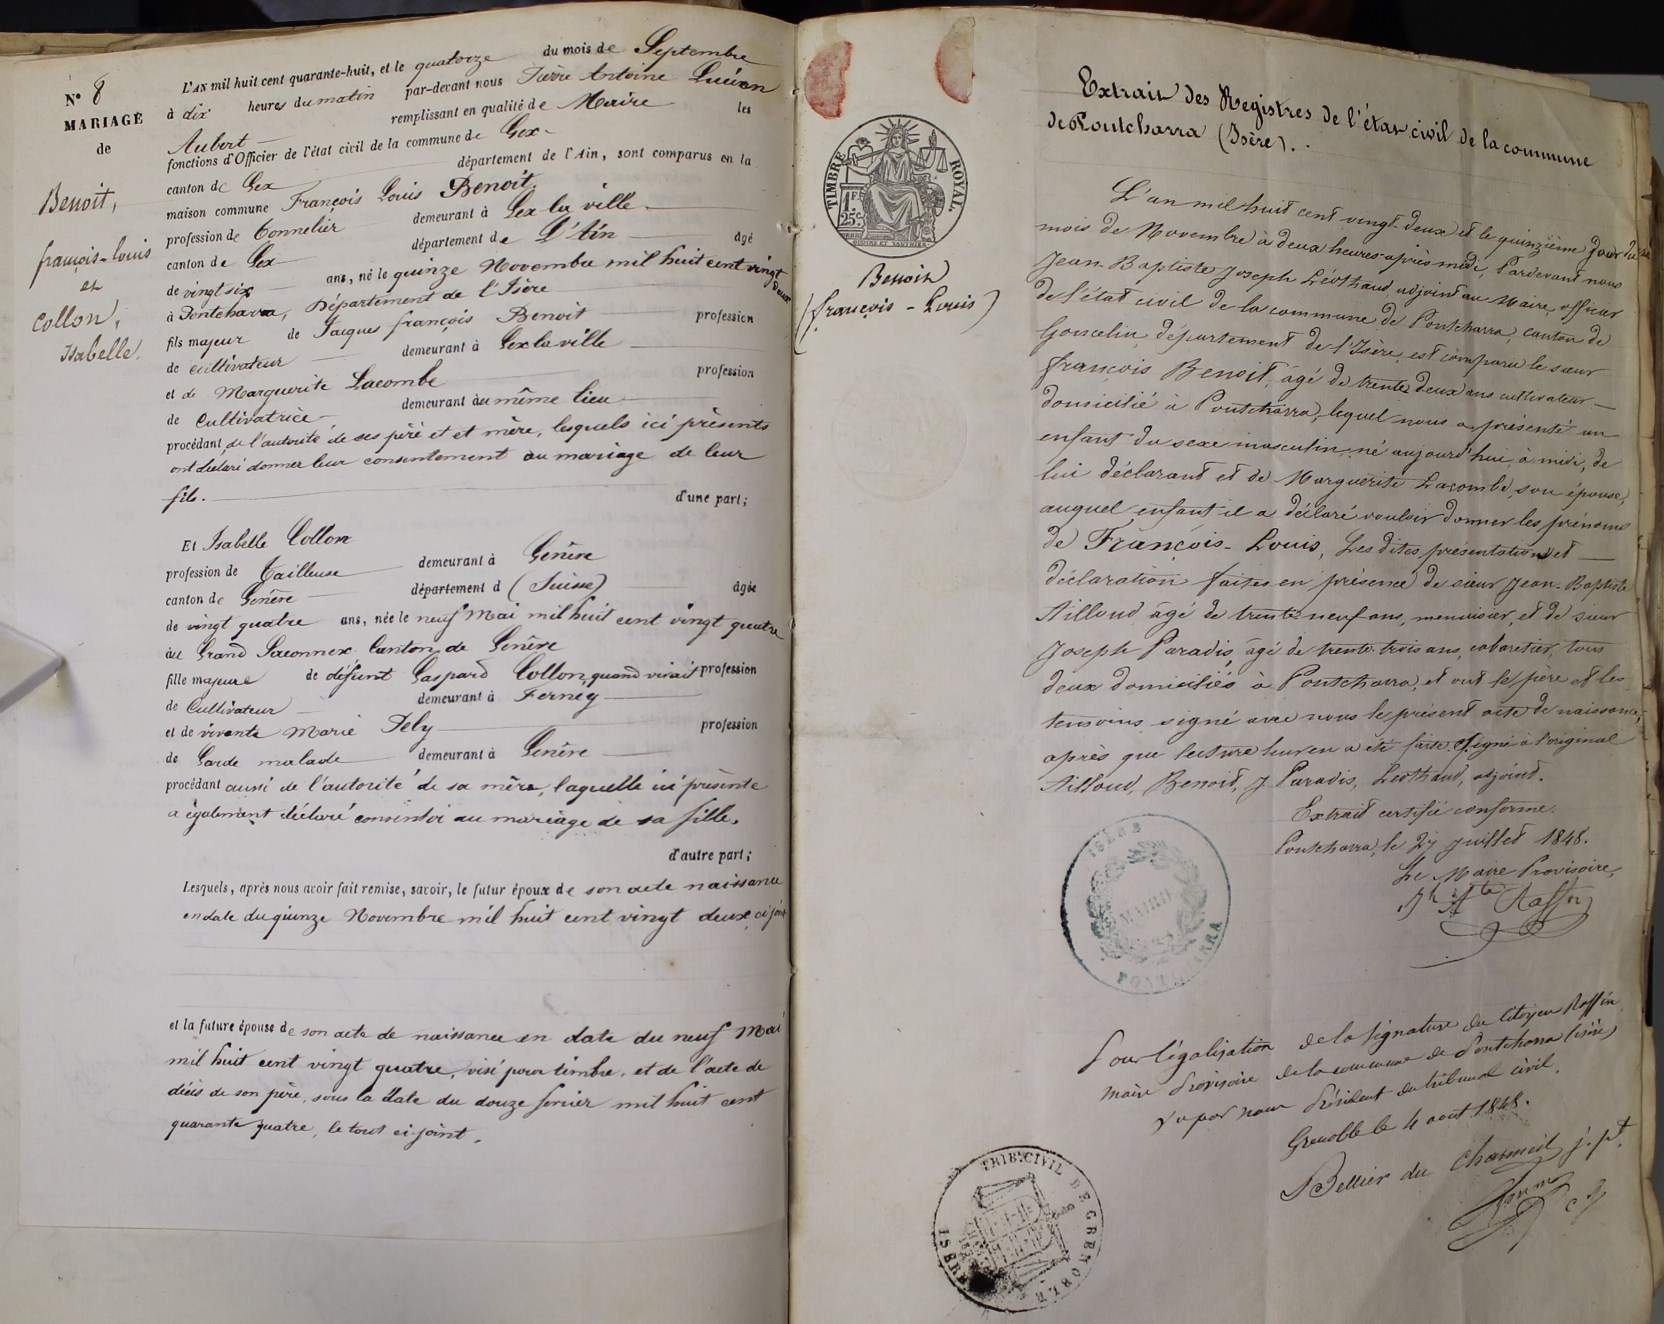 N° 8
MARIAGE
de
Benoit,
françois-louis
et
Collon,
Isabelle.
L'AN mil huit cent quarante-huit, et le quatorze du mois de Septembre
à dix heures du matin par-devant nous Pierre Antoine Lucien
Aubert remplissant en qualité de Maire les
fonctions d'Officier de l'état civil de la commune de Gex
canton de Gex département de l'Ain, sont comparus en la
maison commune François Louis Benoit,
profession de Tonnelier demeurant à Gex la ville
canton de Gex département de L'Ain âgé
de vingt six ans, né le quinze Novembre mil huit cent vingt deux
à Pontcharra, Département de l'Isère
fils majeur de Jaques françois Benoit profession
de cultivateur demeurant à Gex la ville
et de Marguerite Lacombe profession
de Cultivatrice demeurant au même lieu
procédant de l'autorité de ses père et et mère, lesquels ici présents
ont déclaré donner leur consentement au mariage de leur
fils. d'une part;
Et Isabelle Collon
profession de Tailleuse demeurant à Genève
canton de Genève département d (Suisse) âgée
de vingt quatre ans, née le neuf Mai mil huit cent vingt quatre
au Grand Saconnex Canton de Genève
fille majeure de défunt Gaspard Collon, quand vivait profession
de Cultivateur demeurant à Ferney
et de vivante Marie Pely profession
de Garde malade demeurant à Genève
procédant aussi de l'autorité de sa mère, laquelle ici présente
a également déclaré consentir au mariage de sa fille.
d'autre part;
Lesquels, après nous avoir fait remise, savoir, le futur époux de son acte naissance
en date du quinze Novembre mil huit cent vingt deux, ci joint
et la future épouse de son acte de naissance en date du neuf Mai
mil huit cent vingt quatre, visé pour timbre, et de l'acte de
décès de son père, sous la date du douze février mil huit cent
quarante quatre, le tout ci-joint.
TIMBRE ROYAL.
1 F.
25 c.
Benoit
(françois-Louis)
Extrait des Registres de l'état civil de la commune
de Pontcharra (Isère).
L'an mil huit cent vingt-deux et le quinzième jour du
mois de Novembre à deux heures après midi, Pardevant nous
Jean-Baptiste Joseph Léothaud adjoint au Maire, officier
de l'état civil de la commune de Pontcharra, canton de
Goncelin, département de l'Isère, est comparu le sieur
François Benoit, âgé de trente deux ans cultivateur
domicilié à Pontcharra, lequel nous a présenté un
enfant du sexe masculin né aujourd'hui, à midi, de
lui déclarant et de Marguerite Lacombe, son épouse,
auquel enfant il a déclaré vouloir donner les prénoms
de François-Louis, Les dites présentation et
déclaration faites en présence de sieur Jean-Baptiste
Ailloud âgé de trente neuf ans, menuisier, et de sieur
Joseph Paradis, âgé de trente trois ans, cabaretier, tous
deux domiciliés à Pontcharra, et ont le père et les
temoins signé avec nous le présent acte de naissance,
après que lecture leur en a été faite. Signé à l'original
Ailloud, Benoit, J Paradis, Léothaud, adjoint.
Extrait certifié conforme.
Pontcharra, le 27 juillet 1848.
Le Maire Provisoire,
Raffin
ISÈRE
MAIRIE
PONTCHARRA
Pour légalisation de la signature du Citoyen Raffin
maire Provisoire de la commune de Pontcharra (isère)
Vu par nous Président du tribunal civil.
Grenoble le 4 août 1848.
Bellier du Charmeil j. pt.
TRIB. CIVIL DE GRENOBLE
ISERE